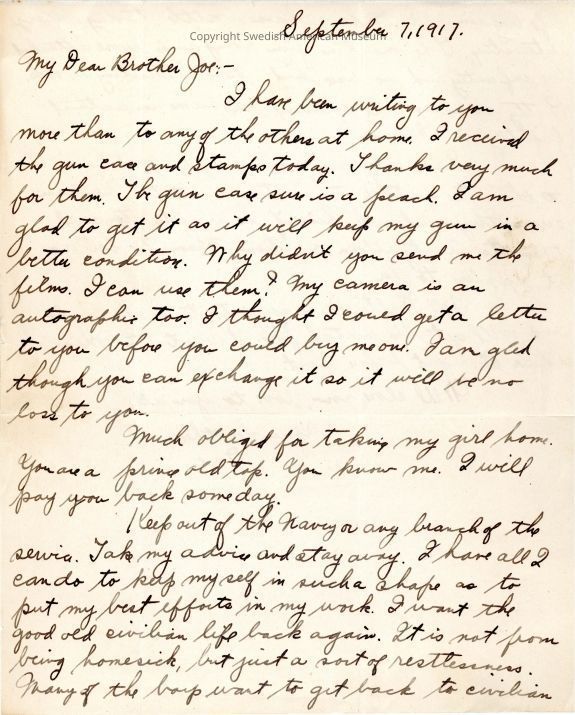 September 7, 1917.
Copyright Swedish American Museum
My Dear Brother Joe:-
I have been writing to you
more than to any of the others at home. I received
the gun case and stamps today. Thanks very much
for them. The gun case sure is a peach. I am
glad to get it as it will keep my gun in a
better condition. Why didn't you send me the
films. I can use them? My camera is an
autographic too. I thought I could get a letter
to you before you could buy me one. I am glad
though you can exchange it so it will be no
loss to you.
Much obliged for taking my girl home.
You are a prince old top. You know me. I will
pay you back someday.
Keep out of the Navy or any branch of the
service. Take my advice and stay away. I have all I
can do to keep myself in such a shape as to
put my best efforts in my work. I want the
good old civilian life back again. It is not from
being homesick, but just a sort of restlessness.
Many of the boys want to get back to civilian